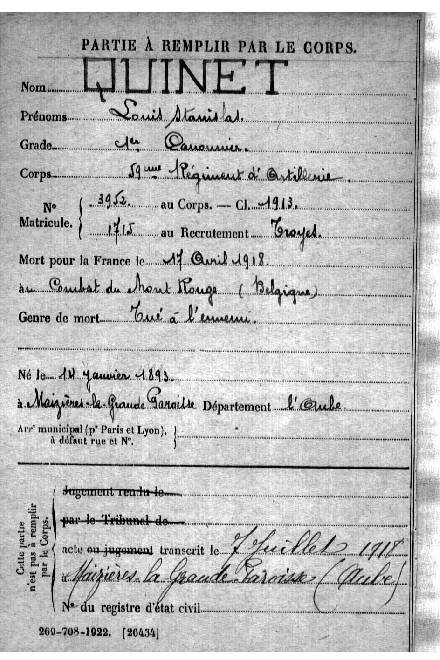 PARTIE À REMPLIR PAR LE CORPS.
Nom QUINET
Prénoms Louis Stanislas.
Grade 1er Canonnier.
Corps 59eme Régiment d'Artillerie.
N° Matricule. 3952 au Corps. — Cl. 1913.
1715 au Recrutement Troyes.
Mort pour la France le 17 Avril 1918
au Combat du Mont Rouge (Belgique)
Genre de mort Tué à l'ennemi.
Né le 14 Janvier 1893.
à Maizières-la-Grande Paroisse Département l'Aube
Arrt municipal (pr Paris et Lyon), à défaut rue et N°.
Cette partie n'est pas à remplir par le Corps.
Jugement rendu le
par le Tribunal de
acte ou jugement transcrit le 7 Juillet 1918
Maizières-la Grande-Paroisse (Aube)
N° du registre d'état civil
260-708-1922. [26434]